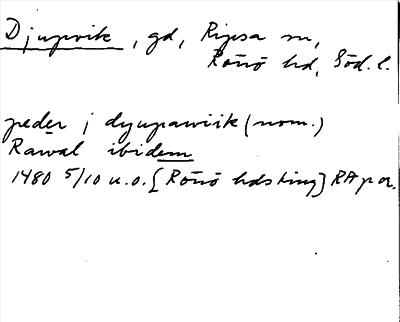 Djupvik, gd, Ripsa sn,
Rönö hd, Söd. l.
peder j dyupawiik (nom.)
Rawal ibidem
1480 5/10 u.o. [Rönö hdsting] RA p or.